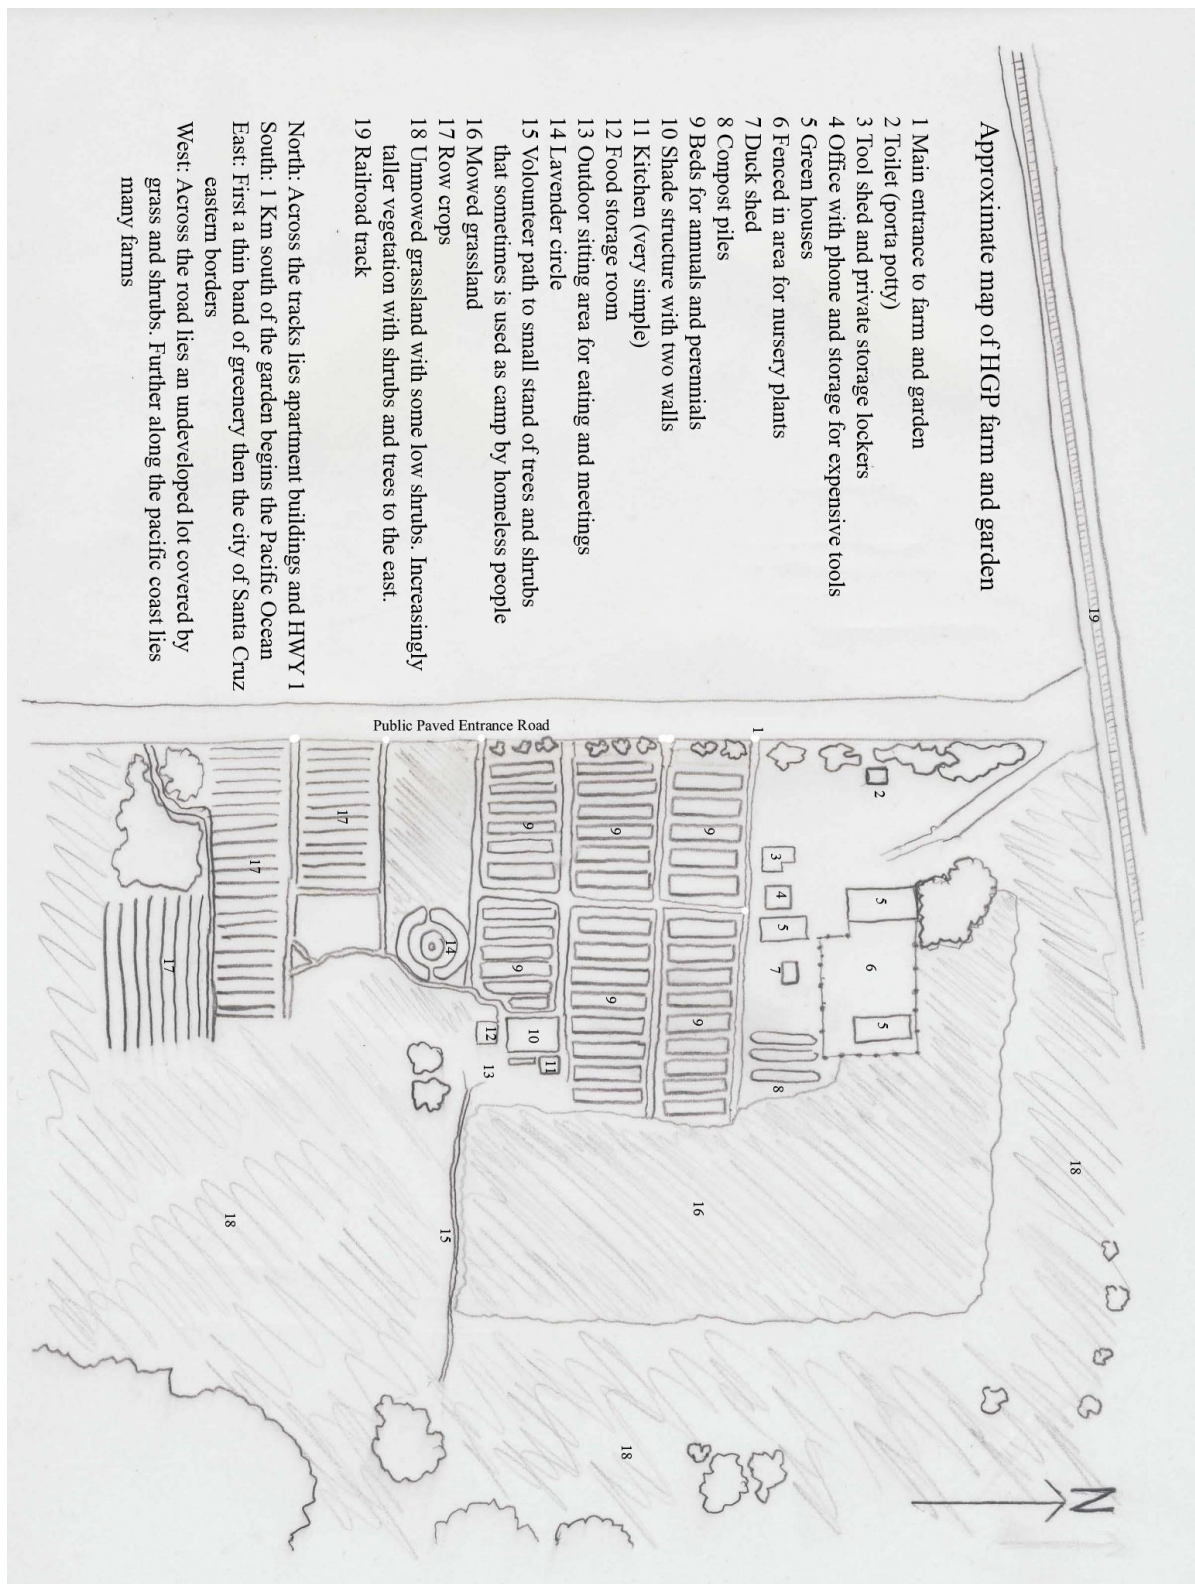 Approximate map of HGP farm and garden
1 Main entrance to farm and garden
2 Toilet (porta potty)
3 Tool shed and private storage lockers
4 Office with phone and storage for expensive tools
5 Green houses
6 Fenced in area for nursery plants
7 Duck shed
8 Conpost piles
9 Beds for annuals and perennials
10 Shade structure with two walls
11 Kitchen (very simple)
12 Food storage room
13 Outdoor sitting area for eating and meetings
14 Lavender circle
15 Volounteer path to small stand of trees and shrubs
that sometimes is used as camp by homeless people
16 Mowed grassland
17 Row crops
18 Unmowed grassland with some low shrubs. Increasingly
taller vegetation with shrubs and trees to the east.
19 Railroad track
North: Across the tracks lies apartment buildings and HWY 1
South: 1 Km south of the garden begins the Pacific Ocean
East: First a thin band of greenery then the city of Santa Cruz
eastern borders
West: Across the road lies an undeveloped lot covered by
grass and shrubs. Further along the pacific coast lies
many farms
19
Public Paved Entrance Road
1
2
3
4
5
5
6
5
7
8
9
9
9
9
9
9
10
11
12
13
14
15
16
17
17
17
18
18
18
N